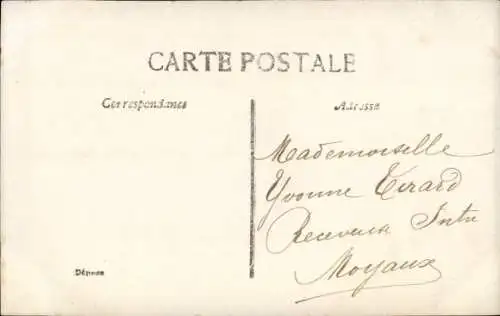 CARTE POSTALE
Correspondance
Adresse
Mademoiselle
Yvonne Tirard
Receveur
Moyaux